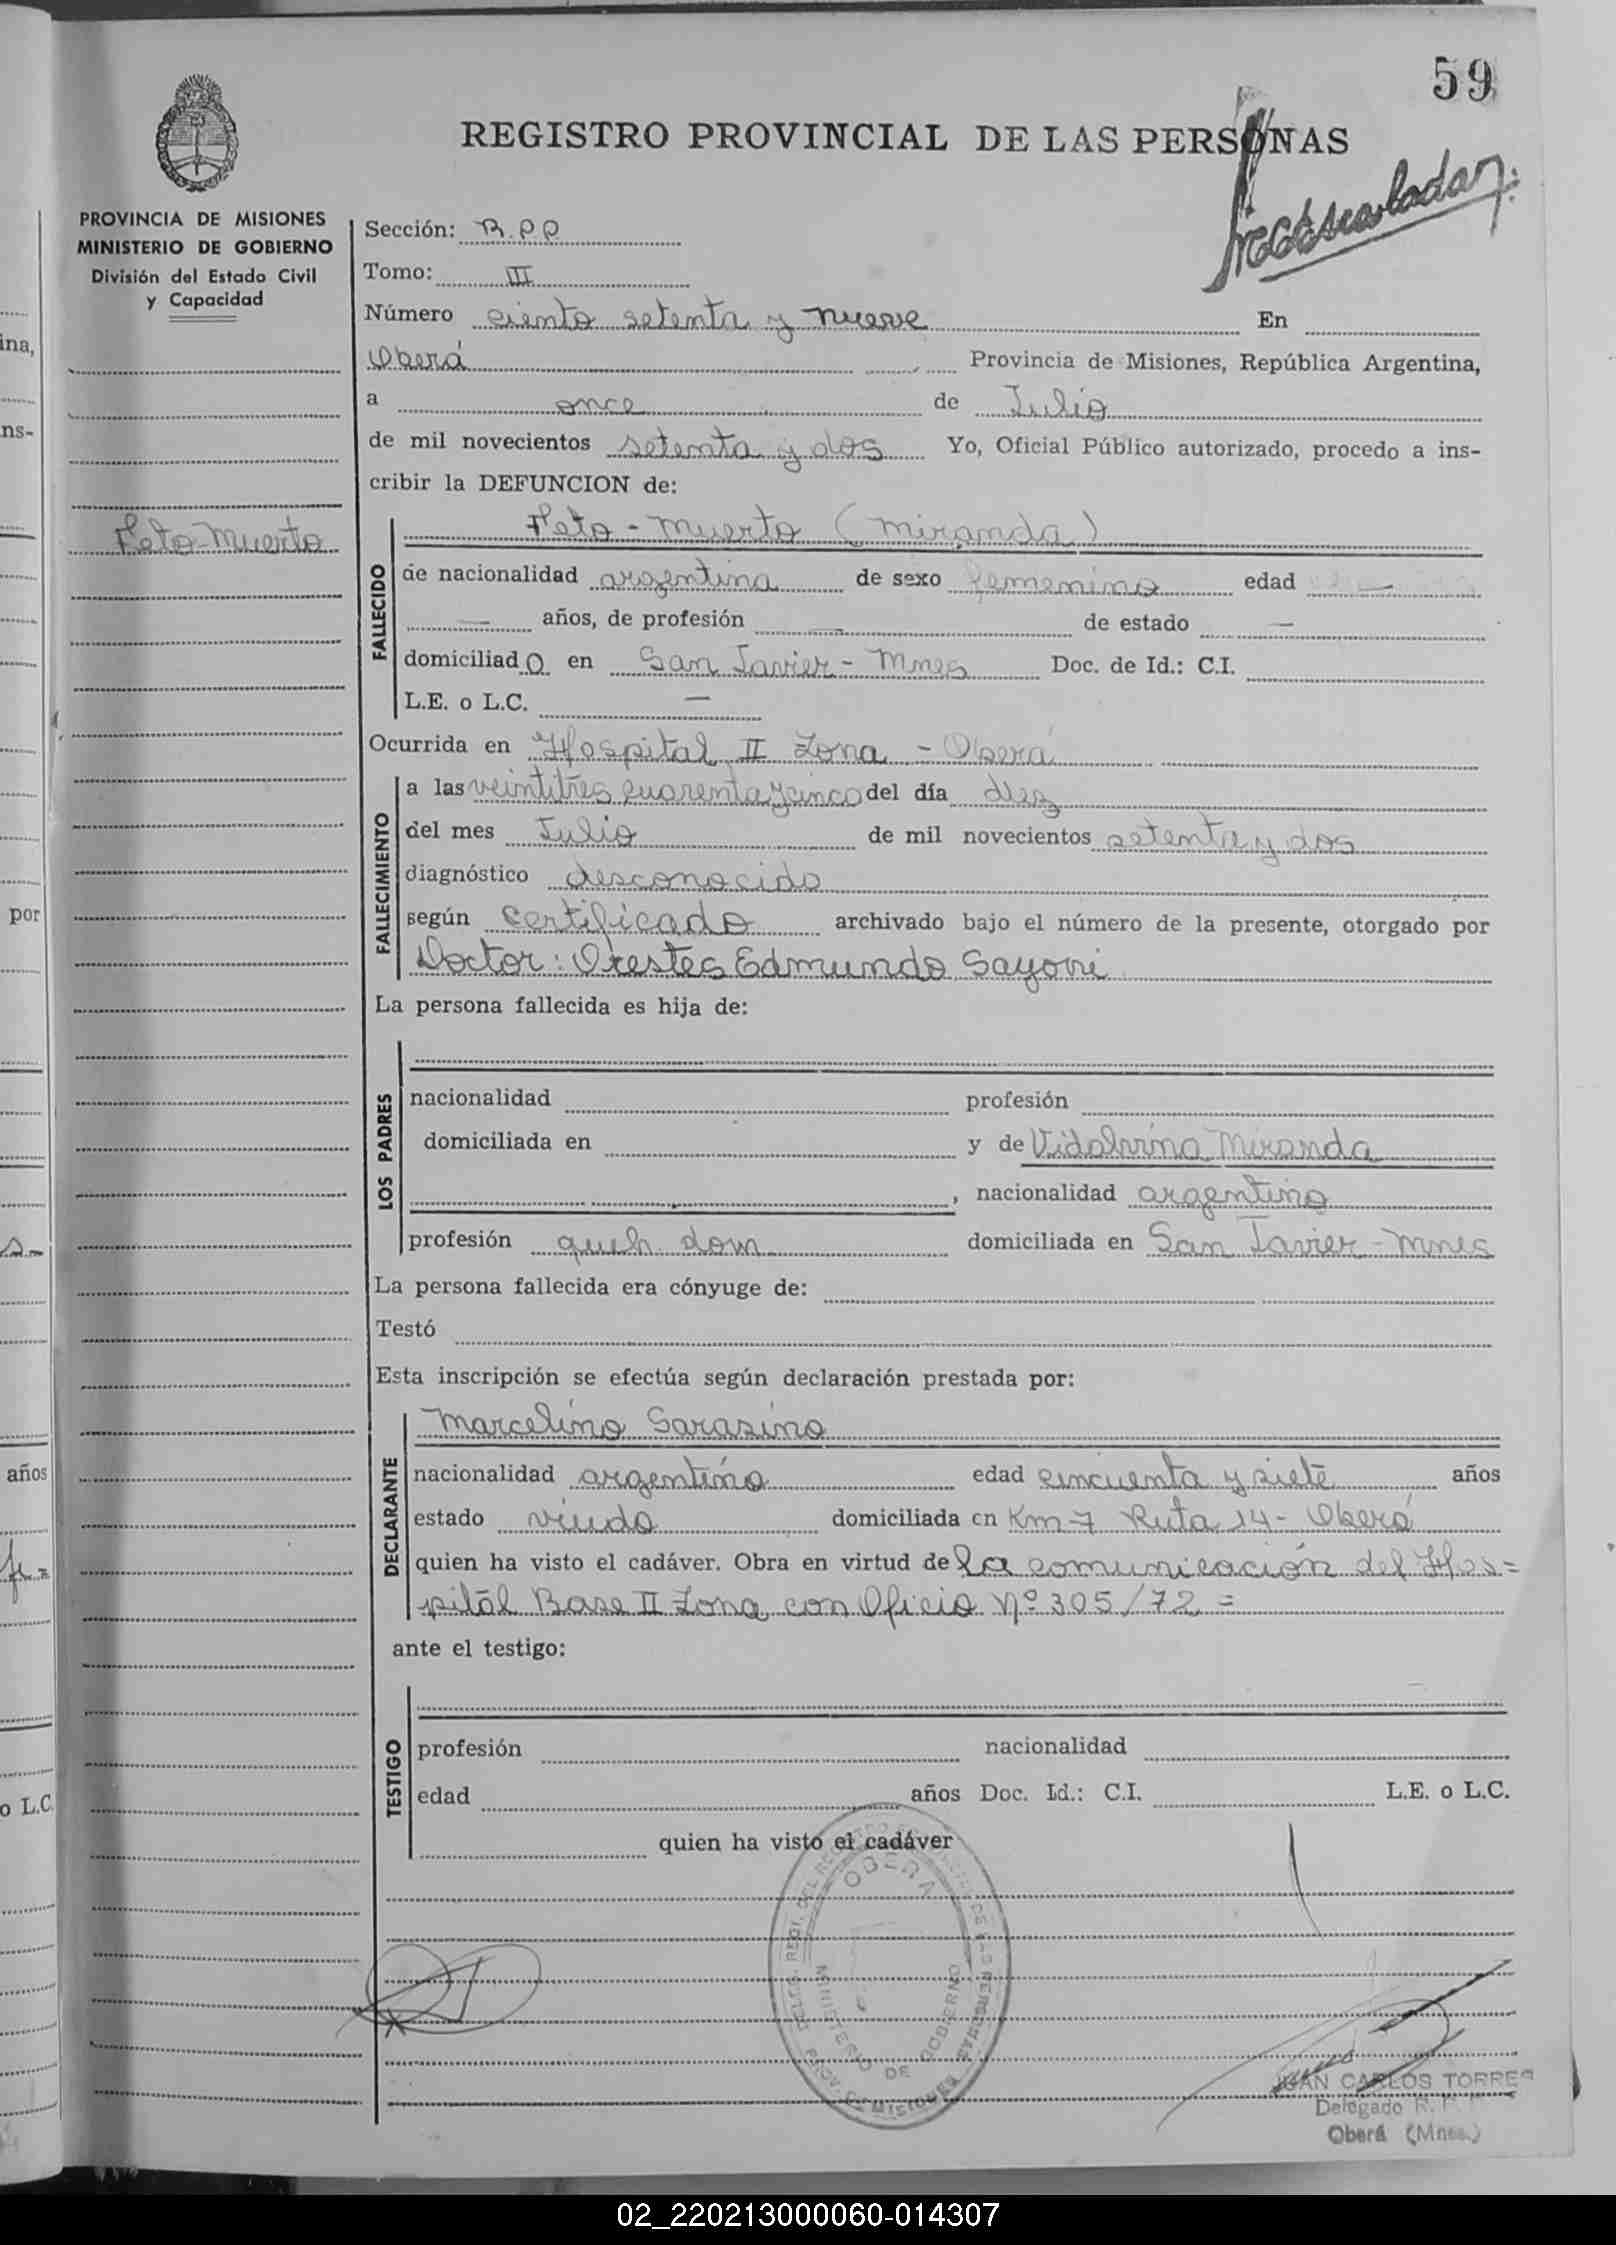 59
REGISTRO PROVINCIAL DE LAS PERSONAS
PROVINCIA DE MISIONES
MINISTERIO DE GOBIERNO
División del Estado Civil
y Capacidad
Feto-Muerto
Sección: R.P.P
Tomo: III
Número ciento setenta y nueve En
Oberá Provincia de Misiones, República Argentina,
a once de Julio
de mil novecientos setenta y dos Yo, Oficial Público autorizado, procedo a ins-
cribir la DEFUNCION de:
FALLECIDO
Feto - Muerto (Miranda)
de nacionalidad argentina de sexo femenino edad —
— años, de profesión — de estado —
domiciliado en San Javier - Mnes Doc. de Id.: C.I.
L.E. o L.C. —
Ocurrida en Hospital II Zona - Oberá
FALLECIMIENTO
a las veintitres cuarenta y cinco del día diez
del mes Julio de mil novecientos setenta y dos
diagnóstico desconocido
según certificado archivado bajo el número de la presente, otorgado por
Doctor: Orestes Edmundo
La persona fallecida es hija de:
LOS PADRES
nacionalidad profesión
domiciliada en y de Vidalvina Miranda
, nacionalidad argentina
profesión queh. dom domiciliada en San Javier - Mnes
La persona fallecida era cónyuge de:
Testó
Esta inscripción se efectúa según declaración prestada por:
DECLARANTE
Marcelino Sarasino
nacionalidad argentino edad cincuenta y siete años
estado viudo domiciliada en Km 7 Ruta 14 - Oberá
quien ha visto el cadáver. Obra en virtud de la comunicación del Hos=
pital Base II Zona con Oficio Nº 305/72 =
ante el testigo:
TESTIGO
profesión nacionalidad
edad años Doc. Id.: C.I. L.E. o L.C.
quien ha visto el cadáver
OBERA
MINISTERIO DE GOBIERNO
PROV. DE MISIONES
JUAN CARLOS TORRES
Delegado R. P. P.
Oberá (Mnes.)
ina,
ns-
por
años
o L.C.
02_220213000060-014307